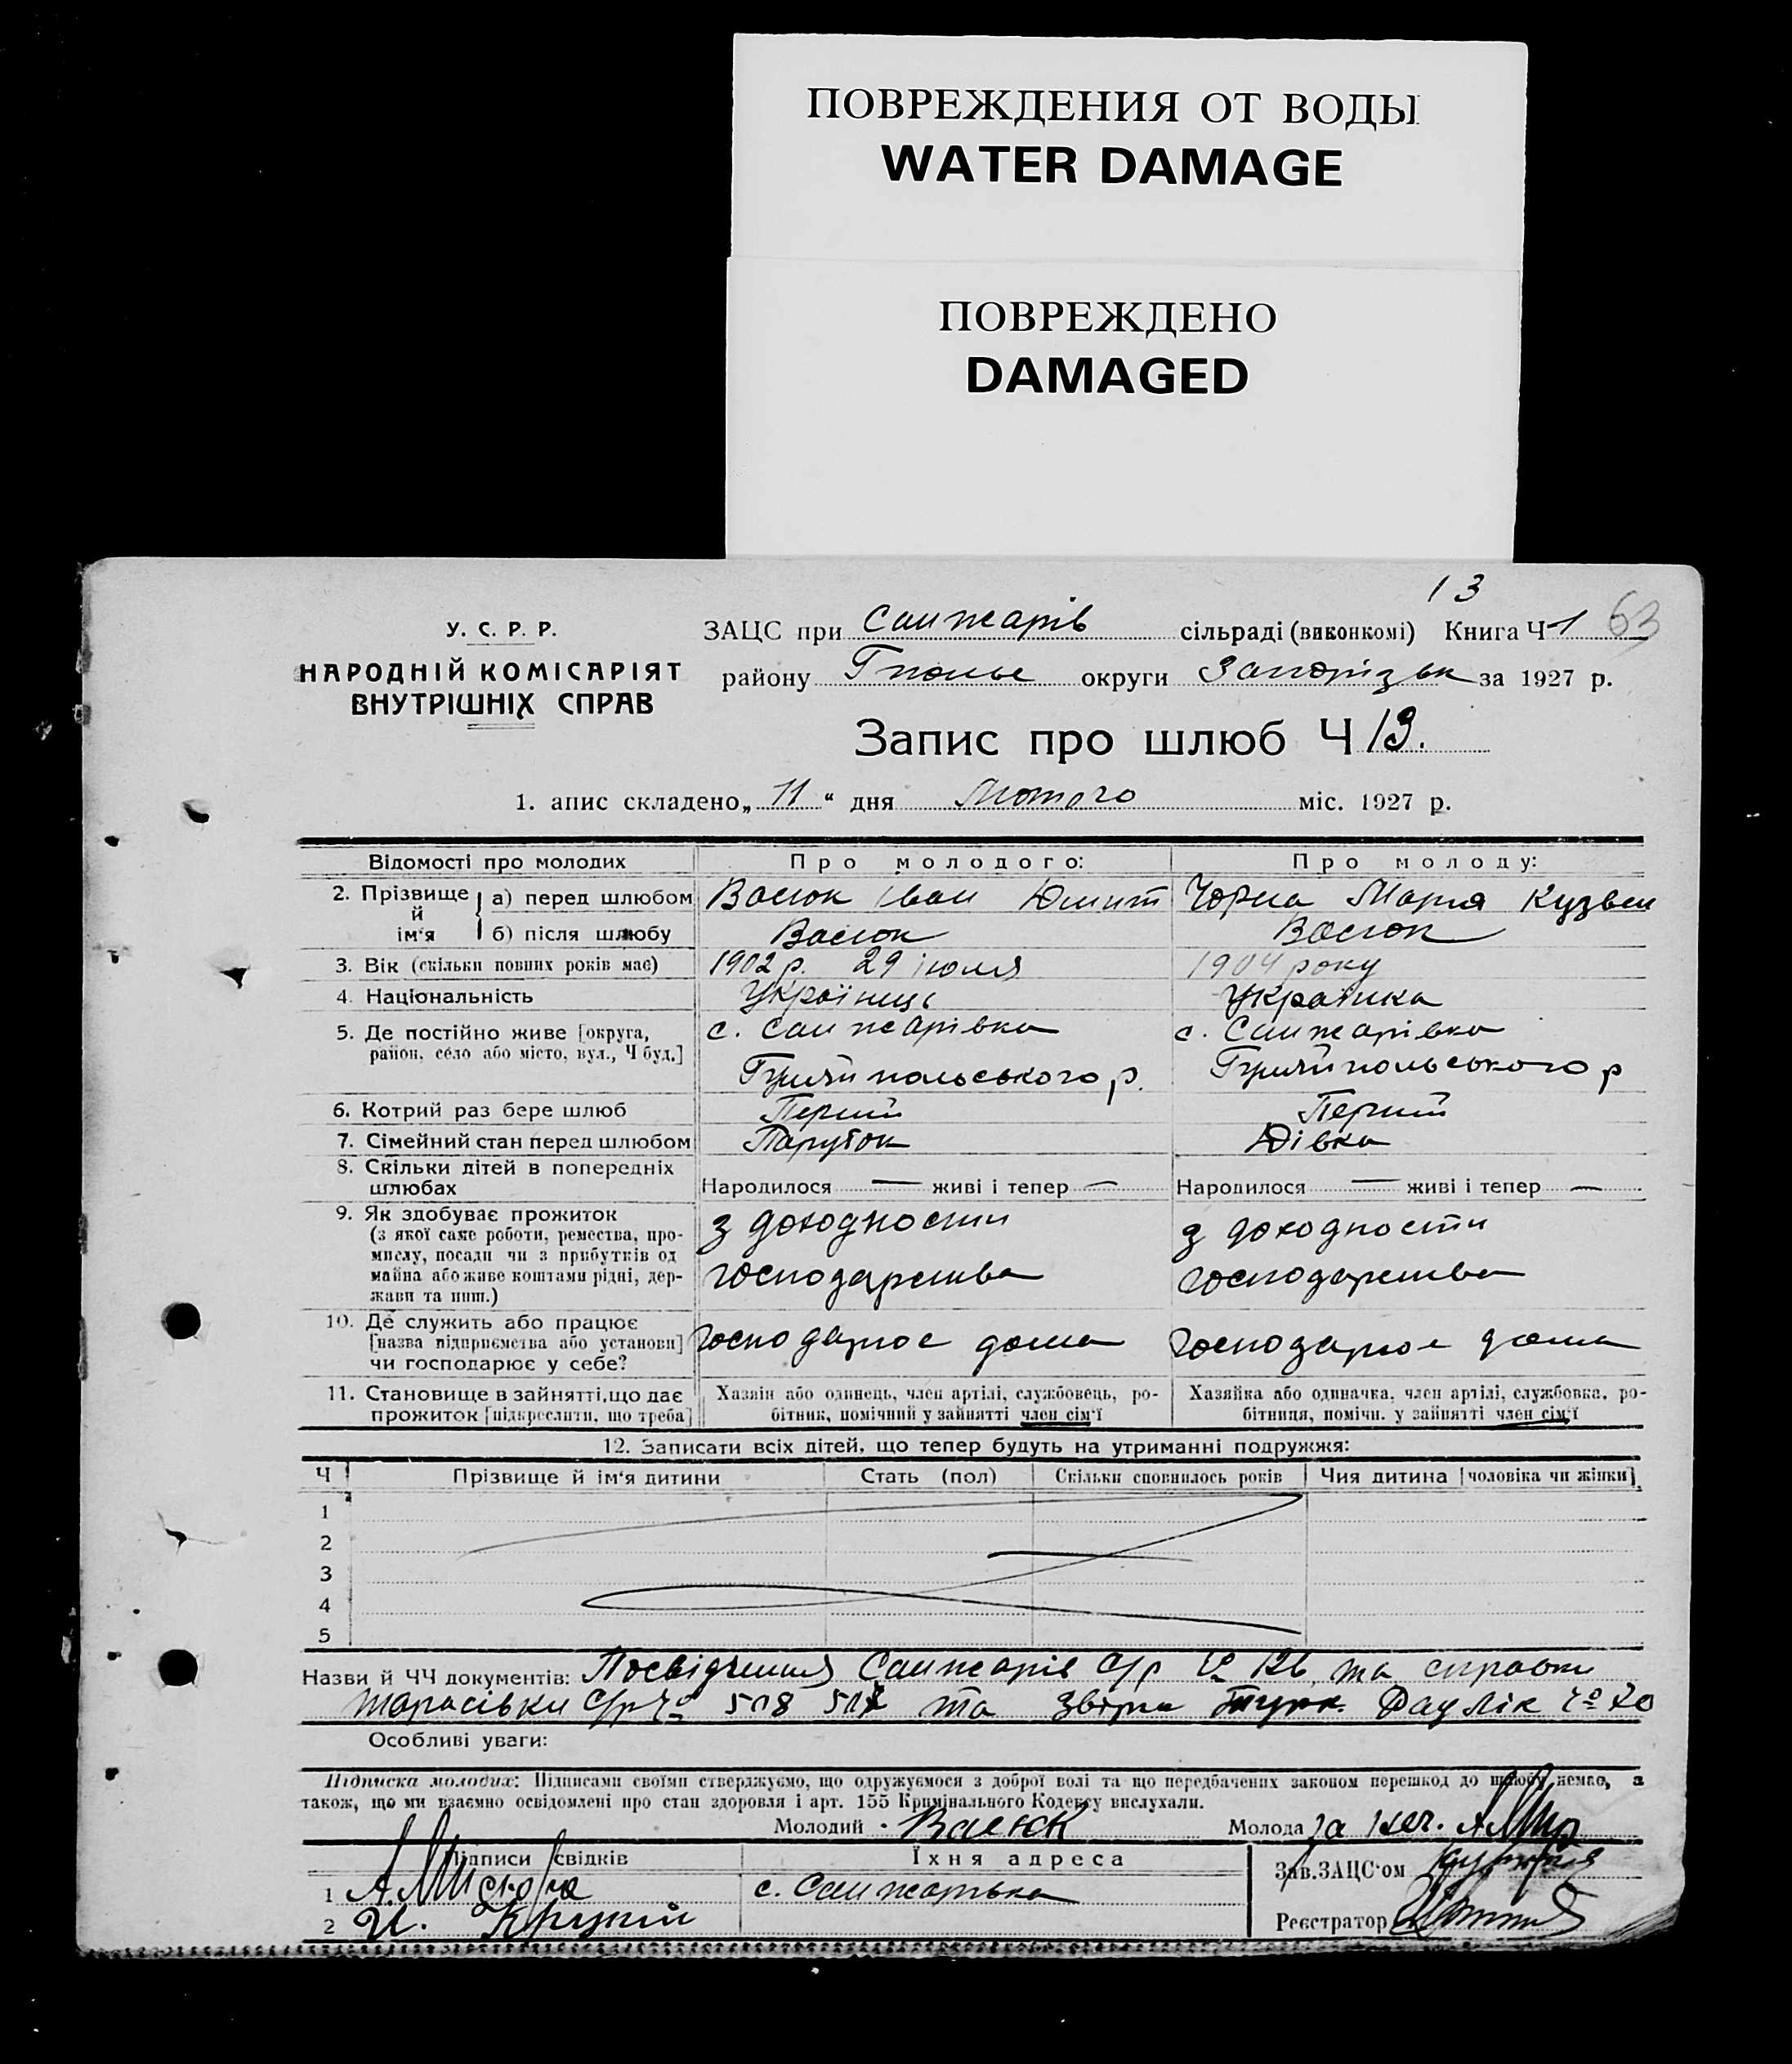 ПОВРЕЖДЕНИЯ ОТ ВОДЫ
WATER DAMAGE
ПОВРЕЖДЕНО
DAMAGED
13
У. С. Р. Р.
НАРОДНІЙ КОМІСАРІЯТ
ВНУТРІШНІХ СПРАВ
ЗАЦС при Санжарів сільраді (виконкомі) Книга Ч 1 63
району Гполье округи Запорізьк за 1927 р.
Запис про шлюб Ч 13.
1. апис складено „ 11 “ дня Лютого міс. 1927 р.
Відомості про молодих Про молодого: Про молоду:
2. Прізвище й ім'я а) перед шлюбом Васюк Іван Юмит Чорна Мария Кузьвен
б) після шлюбу Васюк Васюк
3. Вік (скільки повних років має) 1902 р. 29 июля 1904 року
4. Національність Українець Українка
5. Де постійно живе [округа, район, село або місто, вул., Ч буд.] с. Санжарівка с. Санжарівка
Гуляйпольського р. Гуляйпольського р
6. Котрий раз бере шлюб Перший Перший
7. Сімейний стан перед шлюбом Парубок Дівка
8. Скільки дітей в попередніх шлюбах Народилося — живі і тепер — Народилося — живі і тепер —
9. Як здобуває прожиток
(з якої саме роботи, ремества, промислу, посади чи з прибутків од майна або живе коштами рідні, держави та инш.)
з доходности з доходности
господарства господарства
10. Де служить або працює
[назва підприємства або установи]
чи господарює у себе?
господарює дома господарює дома
11. Становище в зайнятті, що дає Хазяїн або одинець, член артілі, службовець, ро- Хазяйка або одиначка, член артілі, службовка, ро-
прожиток [підкреслити, що треба] бітник, помічний у зайнятті член сім'ї бітниця, помічн. у зайнятті член сім'ї
12. Записати всіх дітей, що тепер будуть на утриманні подружжя:
Ч Прізвище й ім'я дитини Стать (пол) Скільки сповнилось років Чия дитина [чоловіка чи жінки]
1
2
3
4
5
Назви й ЧЧ документів: Посвідчення Санжарів с/р 126 та справки
тарасівки с/р Ч 518 517 та звірка № 20
Особливі уваги:
Підписка молодих: Підписами своїми стверджуємо, що одружуємося з доброї волі та що передбачених законом перешкод до шлюбу немає, а
також, що ми взаємно освідомлені про стан здоровля і арт. 155 Кримінального Кодексу вислухали.
Молодий Васюк Молода за
Підписи свідків Їхня адреса Зав. ЗАЦС'ом
1 с. Санжарівка
2 И. Крупій Реєстратор